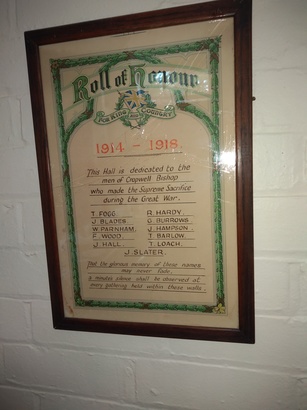 Roll of Honour
FOR KING AND COUNTRY
1914 - 1918.
This Hall is dedicated to the
men of Cropwell Bishop
who made the Supreme Sacrifice
during the Great War.
T. FOGG. R. HARDY.
J. BLADES. G. BURROWS.
W. PARNHAM. J. HAMPSON.
F. WOOD. T. BARLOW.
J. HALL. T. LOACH.
J. SLATER.
That the glorious memory of these names
may never fade,
a minutes silence shall be observed at
every gathering held within these walls.